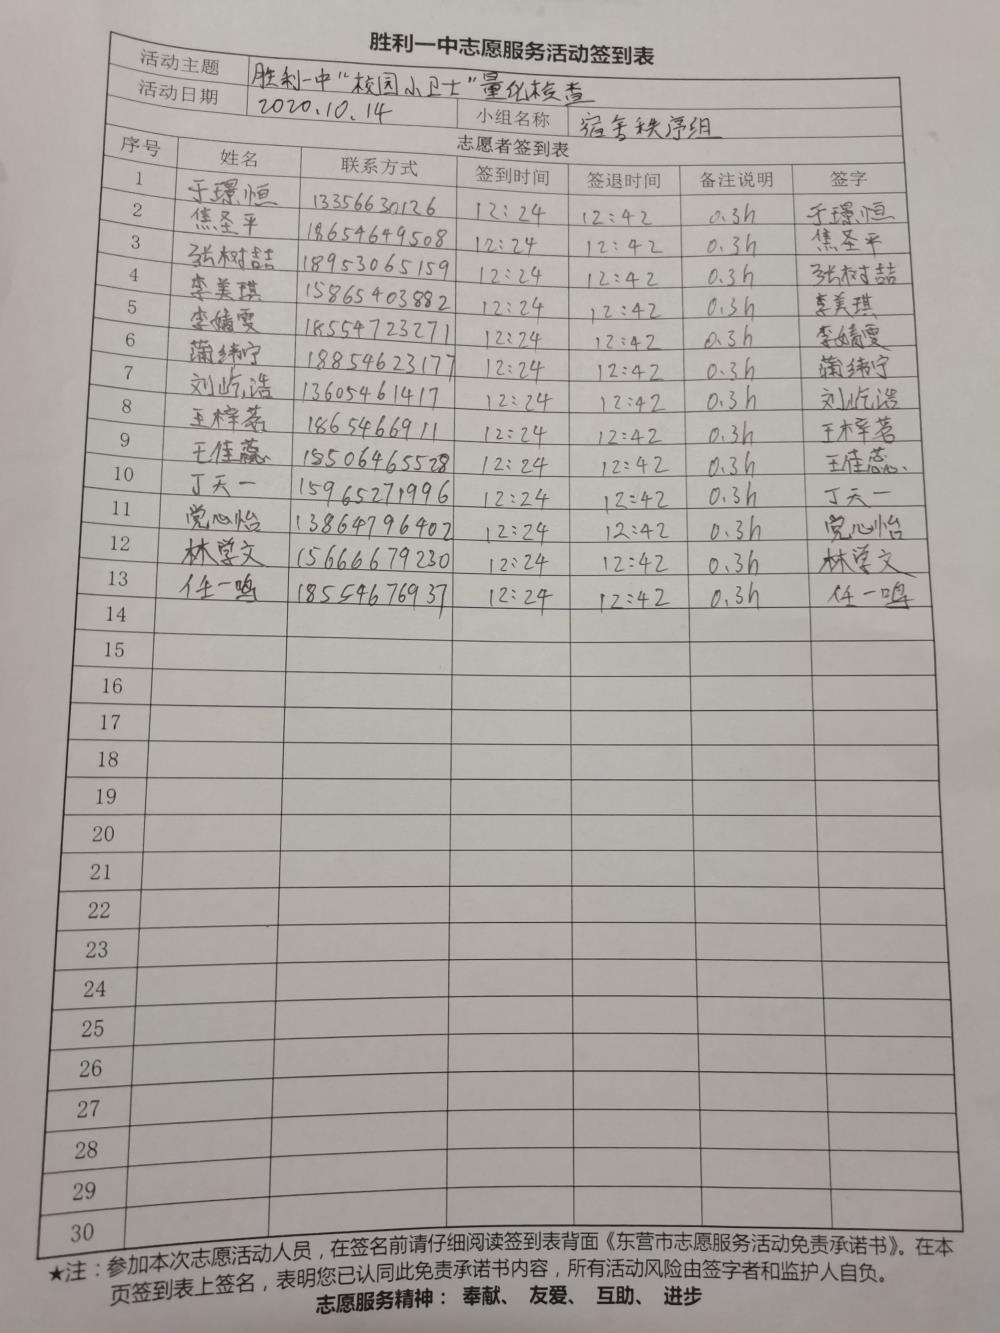 胜利一中志愿服务活动签到表
活动主题 胜利一中"校园小卫士"量化检查
活动日期 2020.10.14 小组名称 宿舍秩序组
志愿者签到表
序号 姓名 联系方式 签到时间 签退时间 备注说明 签字
1 于璟恒 13356630126 12:24 12:42 0.3h 于璟恒
2 焦圣平 18654649508 12:24 12:42 0.3h 焦圣平
3 张树喆 18953065159 12:24 12:42 0.3h 张树喆
4 李美琪 15865403882 12:24 12:42 0.3h 李美琪
5 李婧雯 18554723271 12:24 12:42 0.3h 李婧雯
6 蒲纬宁 18854623177 12:24 12:42 0.3h 蒲纬宁
7 刘屹浩 13605461417 12:24 12:42 0.3h 刘屹浩
8 王梓茗 1865466911 12:24 12:42 0.3h 王梓茗
9 王佳蕊 18506465528 12:24 12:42 0.3h 王佳蕊
10 丁天一 15965271996 12:24 12:42 0.3h 丁天一
11 党心怡 13864796402 12:24 12:42 0.3h 党心怡
12 林学文 15666679230 12:24 12:42 0.3h 林学文
13 任一鸣 18554676937 12:24 12:42 0.3h 任一鸣
14
15
16
17
18
19
20
21
22
23
24
25
26
27
28
29
30
★注：参加本次志愿活动人员，在签名前请仔细阅读签到表背面《东营市志愿服务活动免责承诺书》。在本
页签到表上签名，表明您已认同此免责承诺书内容，所有活动风险由签字者和监护人自负。
志愿服务精神： 奉献、 友爱、 互助、 进步